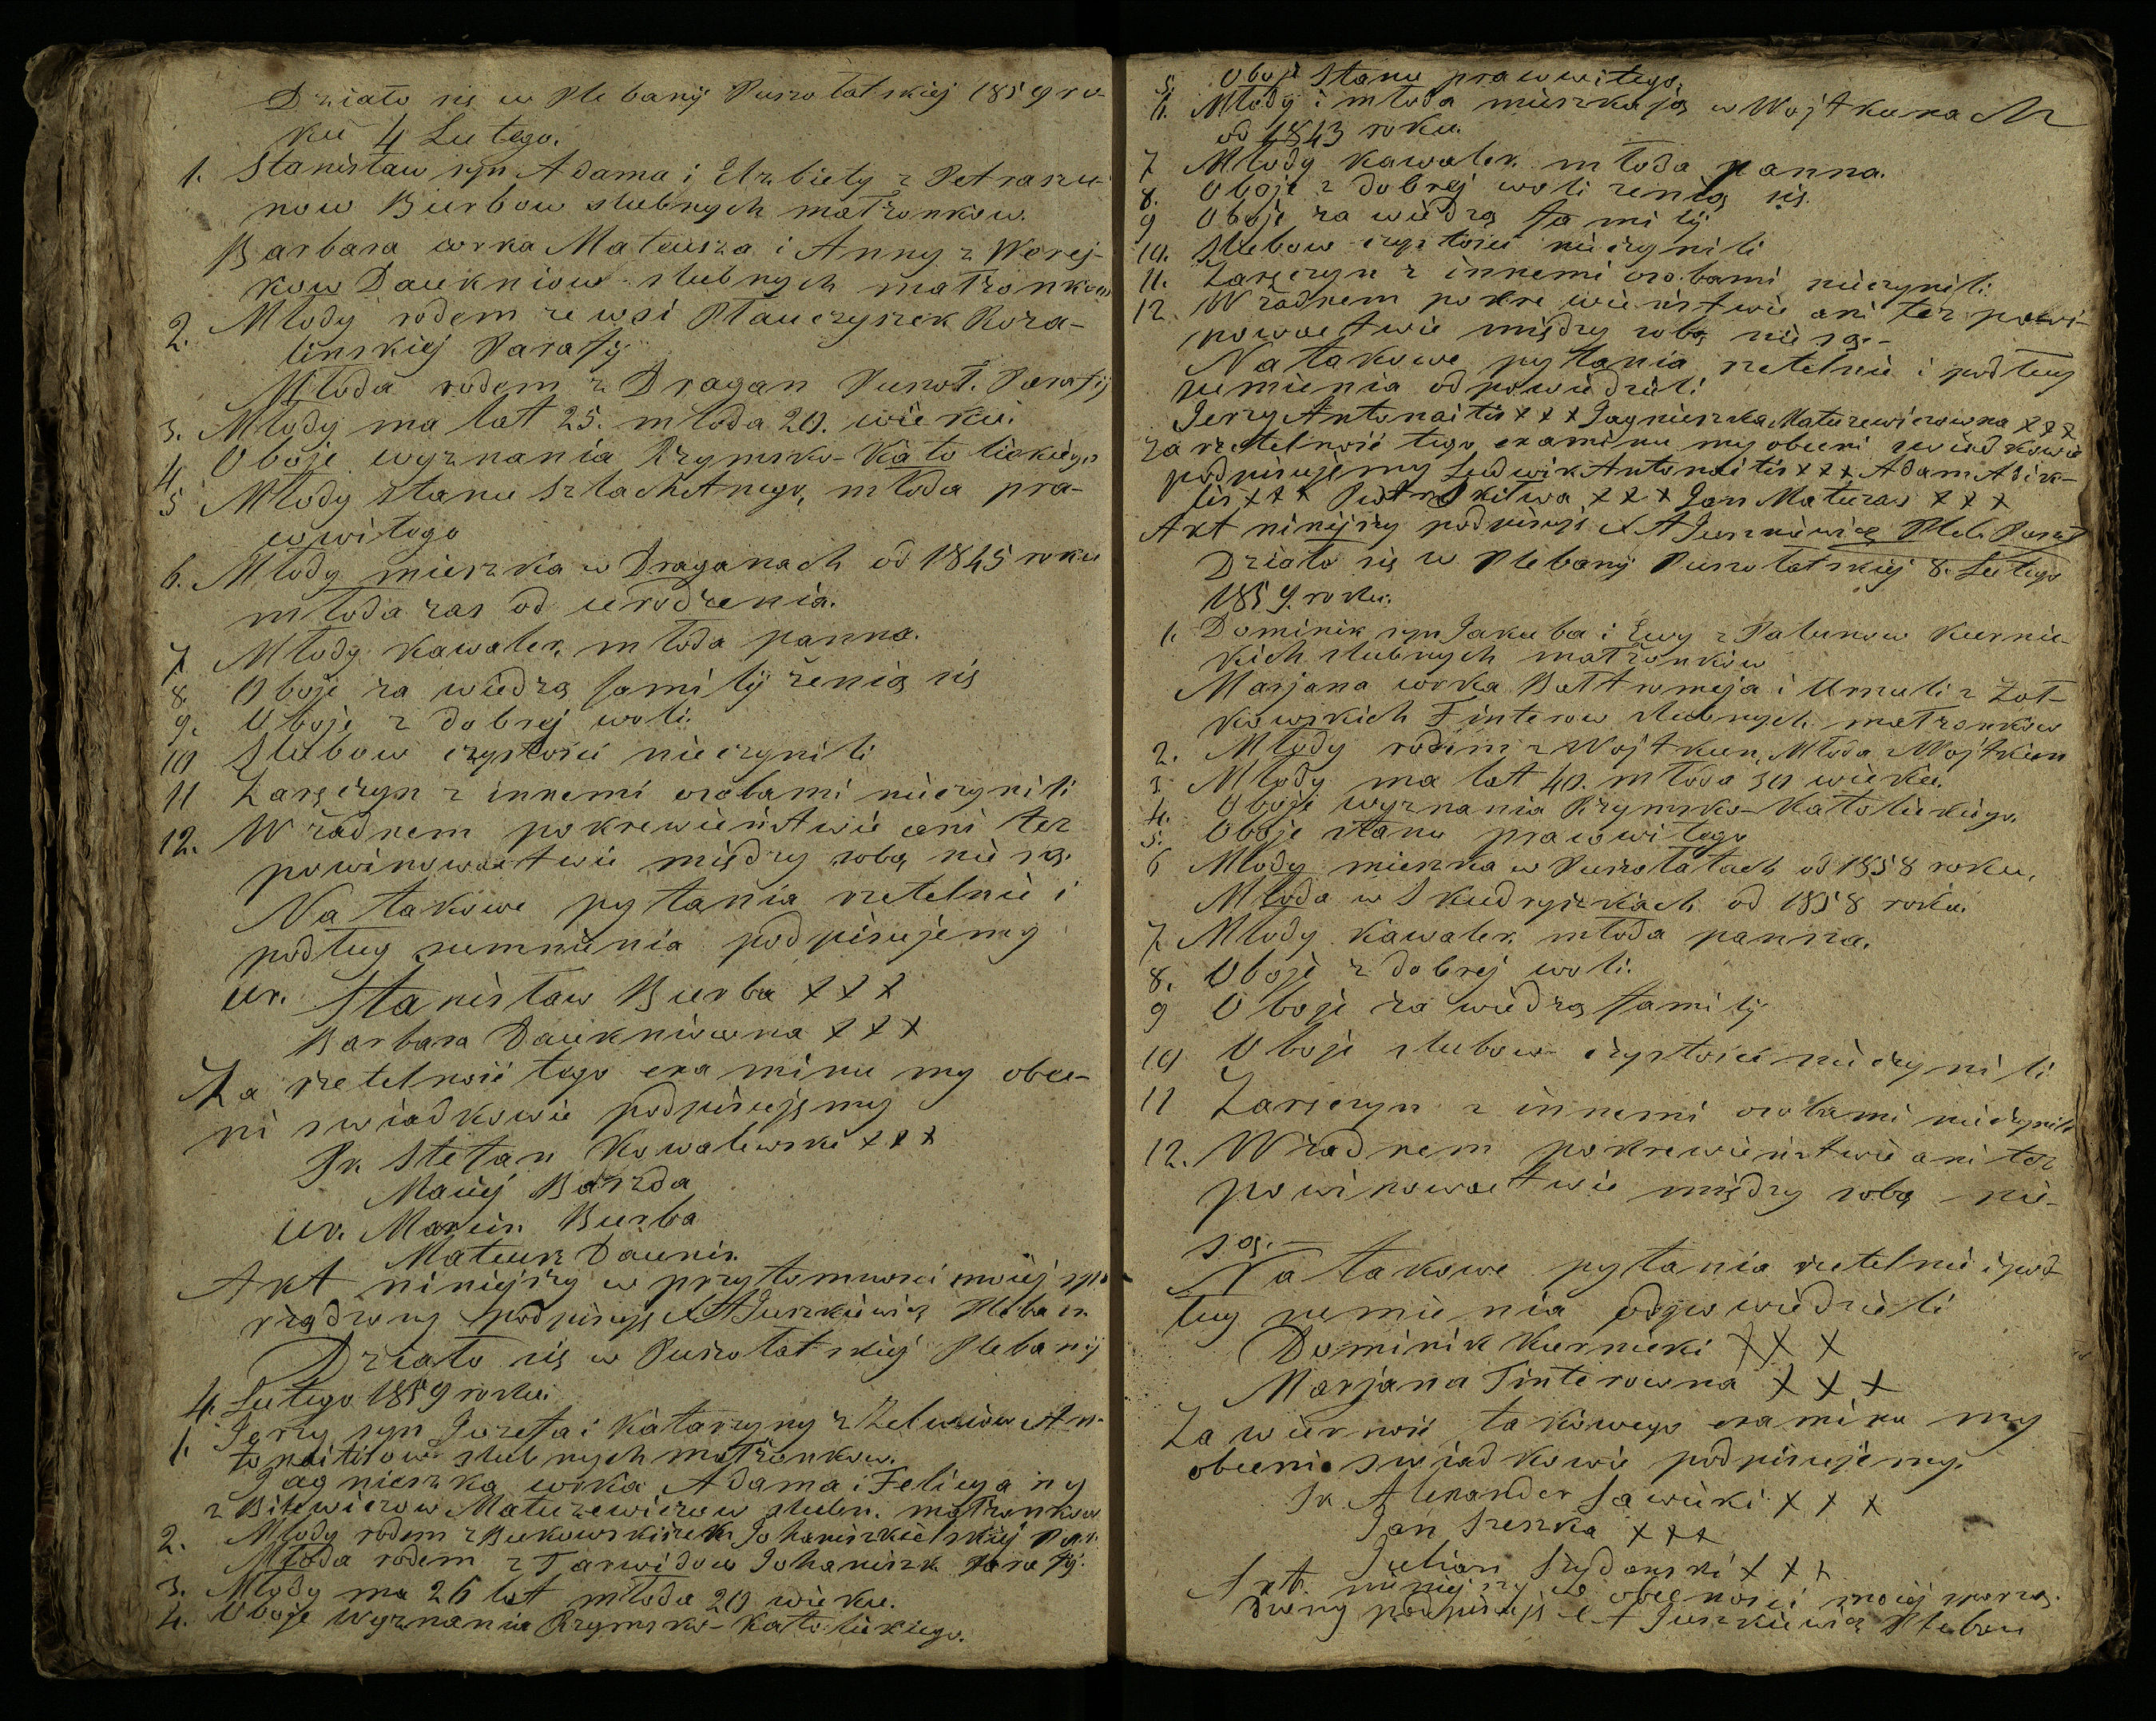 Działo się w Plebanij Puszołatskiej 1859 ro-
ku 4 Lutego.
1. Stanisław syn Adama i Elzbiety z Petraszu-
now Burbow slubnych małżonkow.
Barbara corka Mateusza i Anny z Werej-
kow Daukniow slubnych małżonkow
2. Młody rodem ze wsi Płauczyszek Roza-
linskiej Parafij
Młoda rodem z Dragan Puszoł. Parafij
3. Młody ma lat 25. młoda 20. wieku.
4. Oboje wyznania Rzymsko-Katolickiego
5 Młody stanu szlachetnego, młoda pra-
wowitego
6. Młody mieszka w Draganach od 1845 roku
młoda zas od urodzenia.
7. Młody kawaler, młoda panna.
8. Oboje za wiedzą familij żenią się
9. Oboje z dobrej woli.
10 Slubow czystości nieczynili
11 Zaręczyn z innemi osobami nieczynili
12. W żadnem pokrewieństwie ani tez
powinowactwie między sobą nie są.
Na takowe pytania rzetelnie i
podług sumnienia podpisujemy
Ur. Stanisław Burba x x x
Barbara Daukniowna x x x
Za rzetelność tego examinu my obec-
ni swiadkowie podpisujemy
Sz. Stefan Kowalewski x x x
Maciej Barzda
Ur. Marcin Burba
Mateusz Daunis.
Akt niniejszy w przytomnosci mojej spo-
rządzony podpisuję X A Juszkiewicz Pleban
Działo się w Puszołatskiej Plebanij
4. Lutego 1859 roku.
1. Jerzy syn Jozefa i Katarzyny z An-
tonaitisow slubnych małżonkow.
Jagnieszka corka Adama i Felicyanny
z Bitewiczow Matuzewiczow slubn. małżonkow
2. Młody rodem z Johaniszkielskiej Par.
Młoda rodem z Tarwidow Johaniszk. Parafij.
3. Młody ma 26 lat młoda 20 wieku.
4. Oboje Wyznania Rzymsko-Katolickiego.
5. Oboje Stanu prawowitego.
6. Młody i młoda mieszkają w Wojtkunach
od 1843 roku.
7 Młody kawaler. młoda panna.
8. Oboje z dobrej woli żenią się.
9 Oboje za wiedzą familij
10. Slubow czystości nieczynili
11. Zaręczyn z innemi osobami nieczynili.
12. W żadnem pokrewieństwie ani tez powi-
nowactwie między sobą nie są.-
Na takowe pytania rzetelnie i podług
sumienia odpowiedzieli
Jerzy Antonaitis x x x Jagnieszka Matuzewiczowna x x x
Za rzetelność tego examinu my obecni swiadkowie
podpisujemy Ludwik Antonaitis x x x Adam
x x x Piotr x x x Jan Matuzas x x x
Akt niniejszy podpisuję X A Juszkiewicz Pleb. Puszoł
Działo się w Plebanij Puszołatskiej 8. Lutego
1859. roku.
1. Dominik syn Jakuba i Ewy z Pabunow Kurnic-
kich slubnych małżonków
Marjana corka Bałtromieja i Urszuli z Zoł-
kowskich Finterow slubnych małżonków
2. Młody rodem z Wojtkun, Młoda z Wojtkun
3. Młody ma lat 40. młoda 30 wieku.
4. Oboje wyznania Rzymsko-Katolickiego.
5. Oboje stanu prawowitego
6 Młody mieszka w Puszołatach od 1858 roku,
Młoda w Skudryszkach od 1858 roku.
7. Młody kawaler. młoda panna.
8. Oboje z dobrej woli.
9 Oboje za wiedzą familij
10 Oboje slubow czystości nieczynili
11 Zaręczyn z innemi osobami nieczynili
12. W żadnem pokrewieństwie ani tez
powinowactwie między sobą nie-
są.—
Na takowe pytania rzetelnie i pod-
ług sumienia odpowiedzieli
Dominik Kurnicki x x x
Marjana Finterowna x x x
Za wierność takowego examinu my
obecni swiadkowie podpisujemy.
Sz. Alexander Sawicki x x x
Jan Szeszka x x x
Julian x x x
Akt niniejszy w obecnosci mojej sporzą-
dzony podpisuję X A Juszkiewicz Pleban